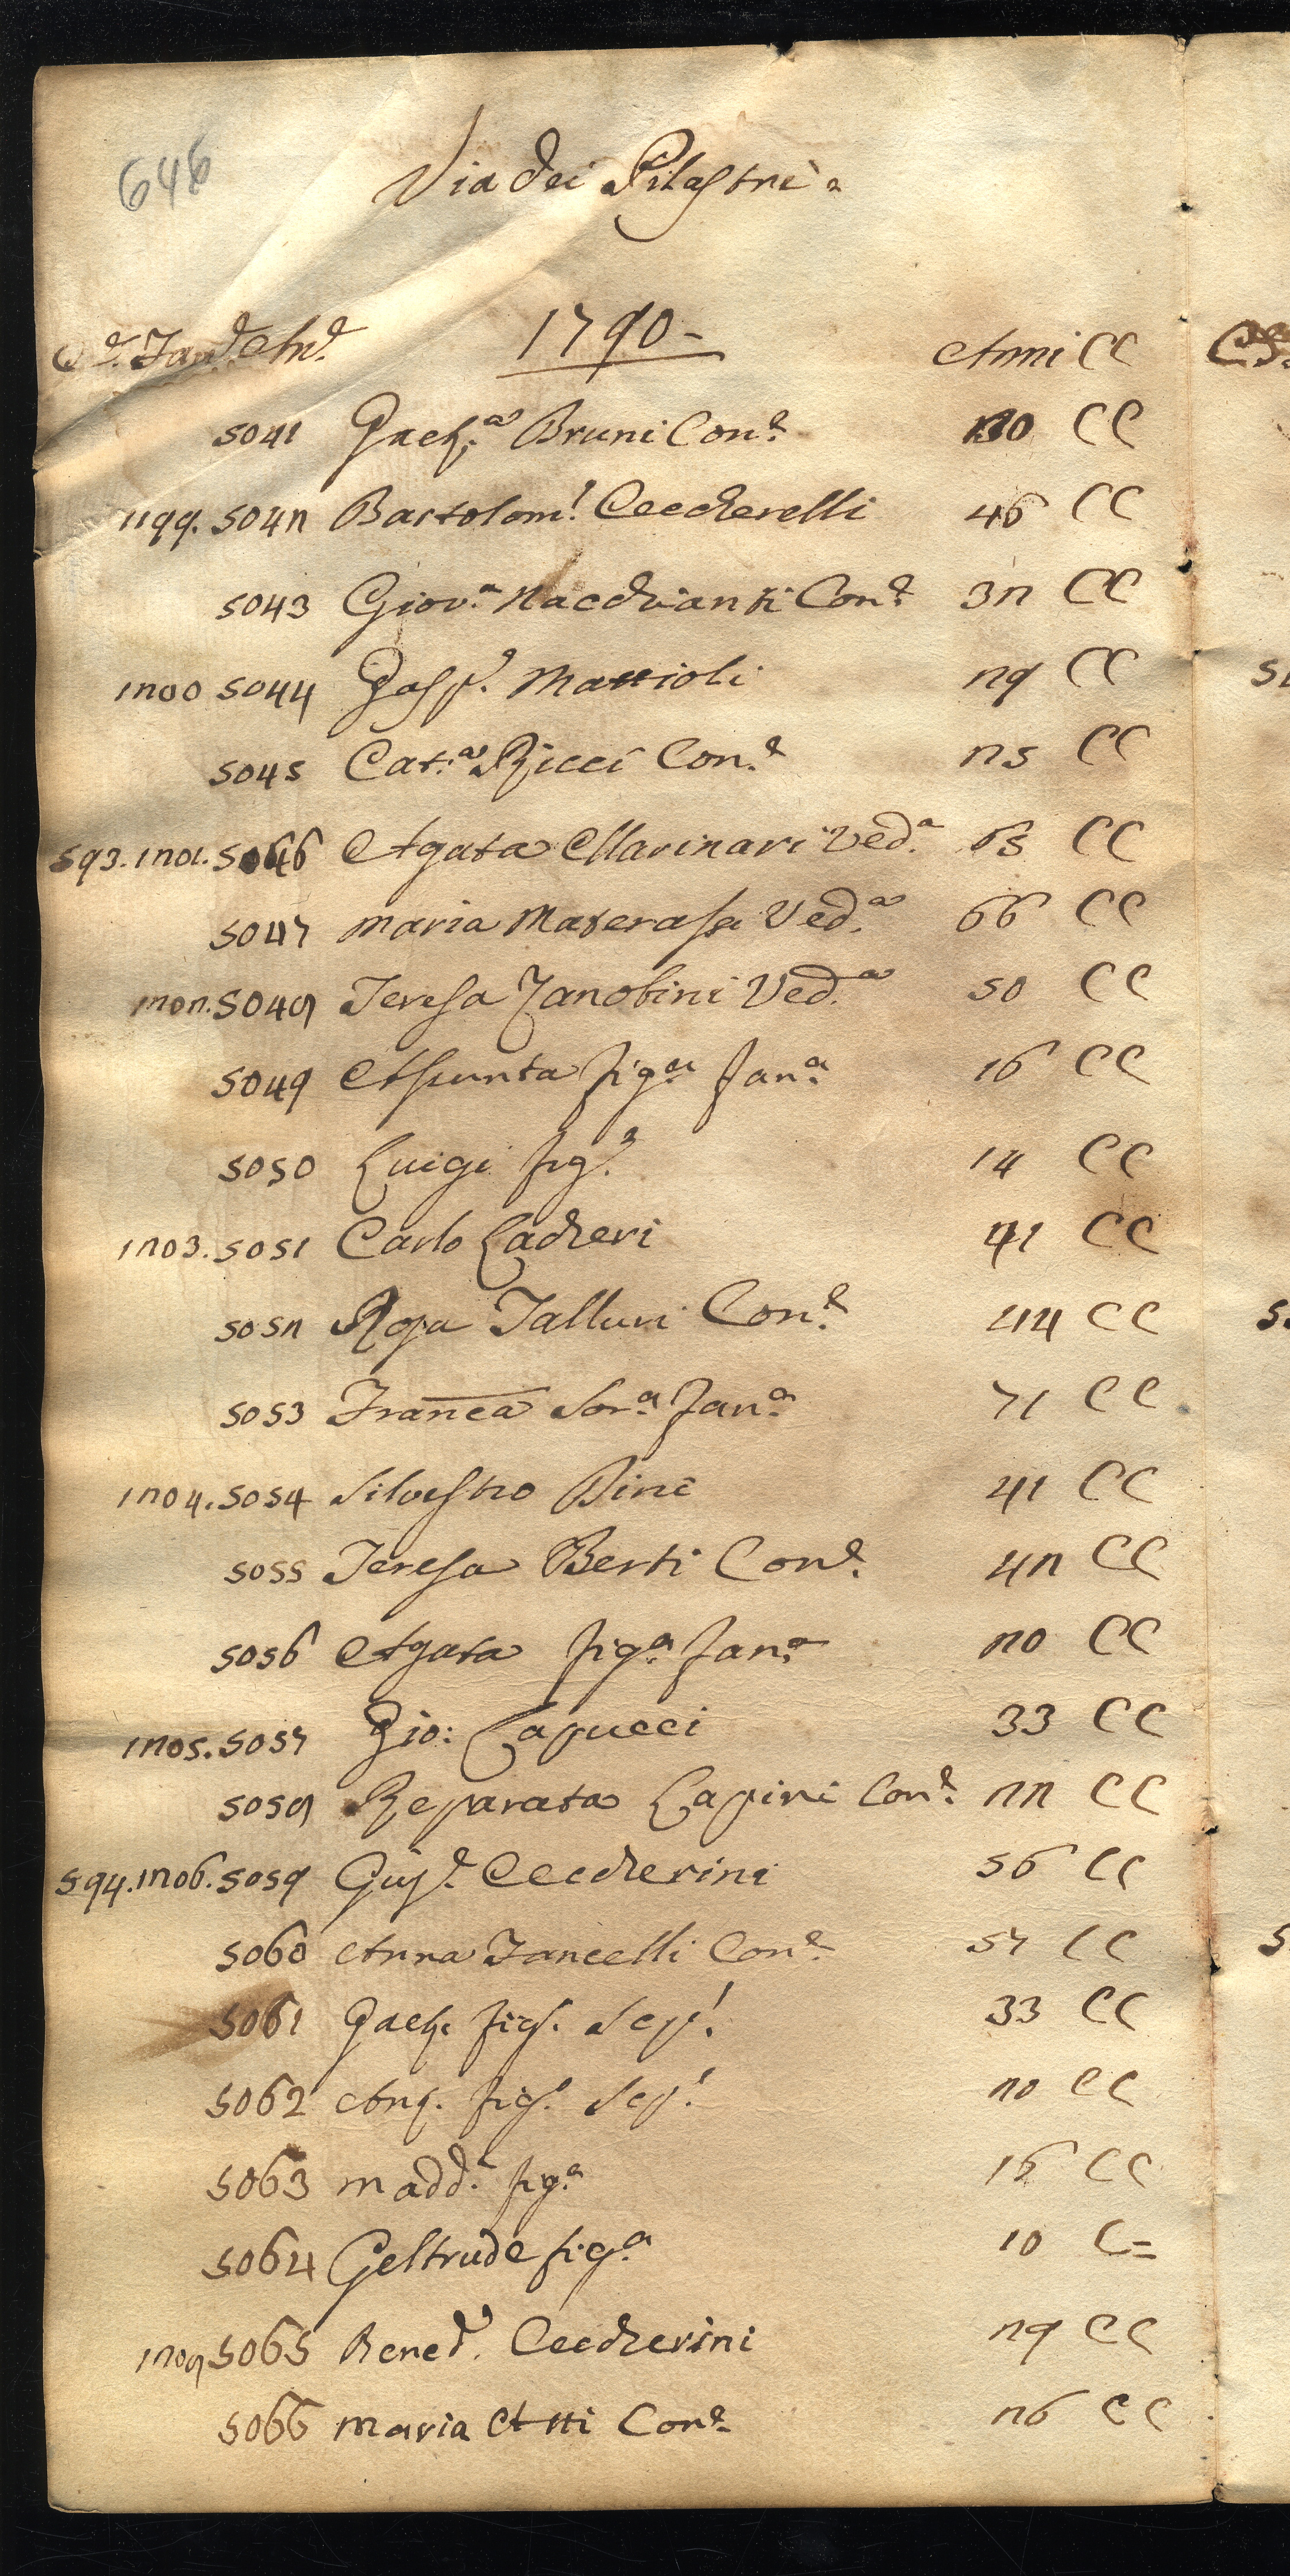 646
Via dei Pilastri =
1790 -
Cᵉ. Famᵉ. Anᵉ. Anni CC
5041 Gaetᵃ Bruni Conᵉ 30 CC
1199. 5042 Bartolomᵒ Ceccherelli 46 CC
5043 Giovᵃ Nacchianti Conᵉ 32 CC
1200 5044 Gaspᵉ. Mattioli 29 CC
5045 Catᵃ Ricci Conᵉ 25 CC
593. 1201. 5046 Agata Marinari Vedᵃ 65 CC
5047 Maria Materassi Vedᵃ 66 CC
1202. 5048 Teresa Zanobini Vedᵃ 50 CC
5049 Assunta figᵃ fanᵃ 16 CC
5050 Luigi figᵒ 14 CC
1203. 5051 Carlo Lacheri 41 CC
5052 Rosa Talluri Conᵉ 44 CC
5053 Franca Sorᵃ fanᵃ 71 CC
1204. 5054 Silvestro Bini 41 CC
5055 Teresa Berti Conᵉ. 42 CC
5056 Agata figᵃ fanᵃ 20 CC
1205. 5057 Gio: Capucci 33 CC
5058 Reparata Lapini Conᵉ 22 CC
594. 1206. 5059 Giusᵉ. Ceccherini 56 CC
5060 Anna Fancelli Conᵉ 57 CC
5061 Gaet. figᵒ. Scapᵒ 33 CC
5062 Ang. figᵒ. Scapᵒ 20 CC
5063 Maddᵃ figᵃ 16 CC
5064 Geltrude figᵃ 10 C=
1208 5065 Benedᵒ. Ceccherini 29 CC
5066 Maria Atti Conᵉ 26 CC